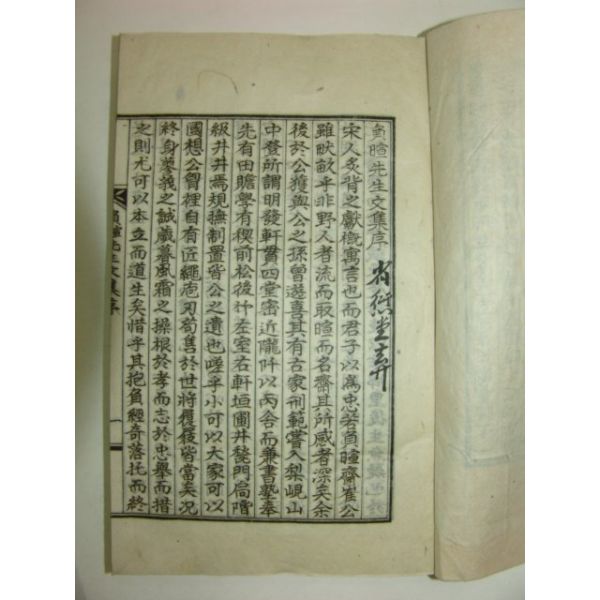 負暄先生文集序
宋人炙背之獻槪寓言也而君子以爲忠若負暄齋崔公
雖畎畝乎非野人者流而取暄而名齋其所感者深矣余
後於公獲與公之孫曾遊喜其有古家刑範嘗入梨峴山
中登所謂明發軒貫四堂密近隴阡以丙舍而兼書塾奉
先有田贍學有稧前松後竹左室右軒垣圃井甃門扃階
級井井焉規撫制置皆公之遺也嗟乎小可以大家可以
國想公胷裡自有匠繩庖刃苟售於世將履屐皆當矣況
終身慕義之誠歲暮風霜之操根於孝而志於忠擧而措
之則尤可以本立而道生矣惜乎其抱負經奇落托而終
負暄先生文集序
一